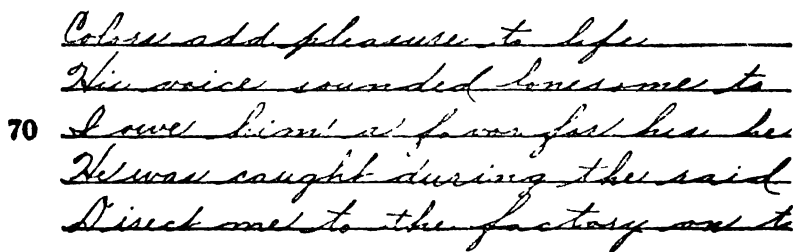 Colors add pleasure to life
His voice sounded lonesome to
70 I owe him a favor for his he
He was caught during the raid
Direct me to the factory on t